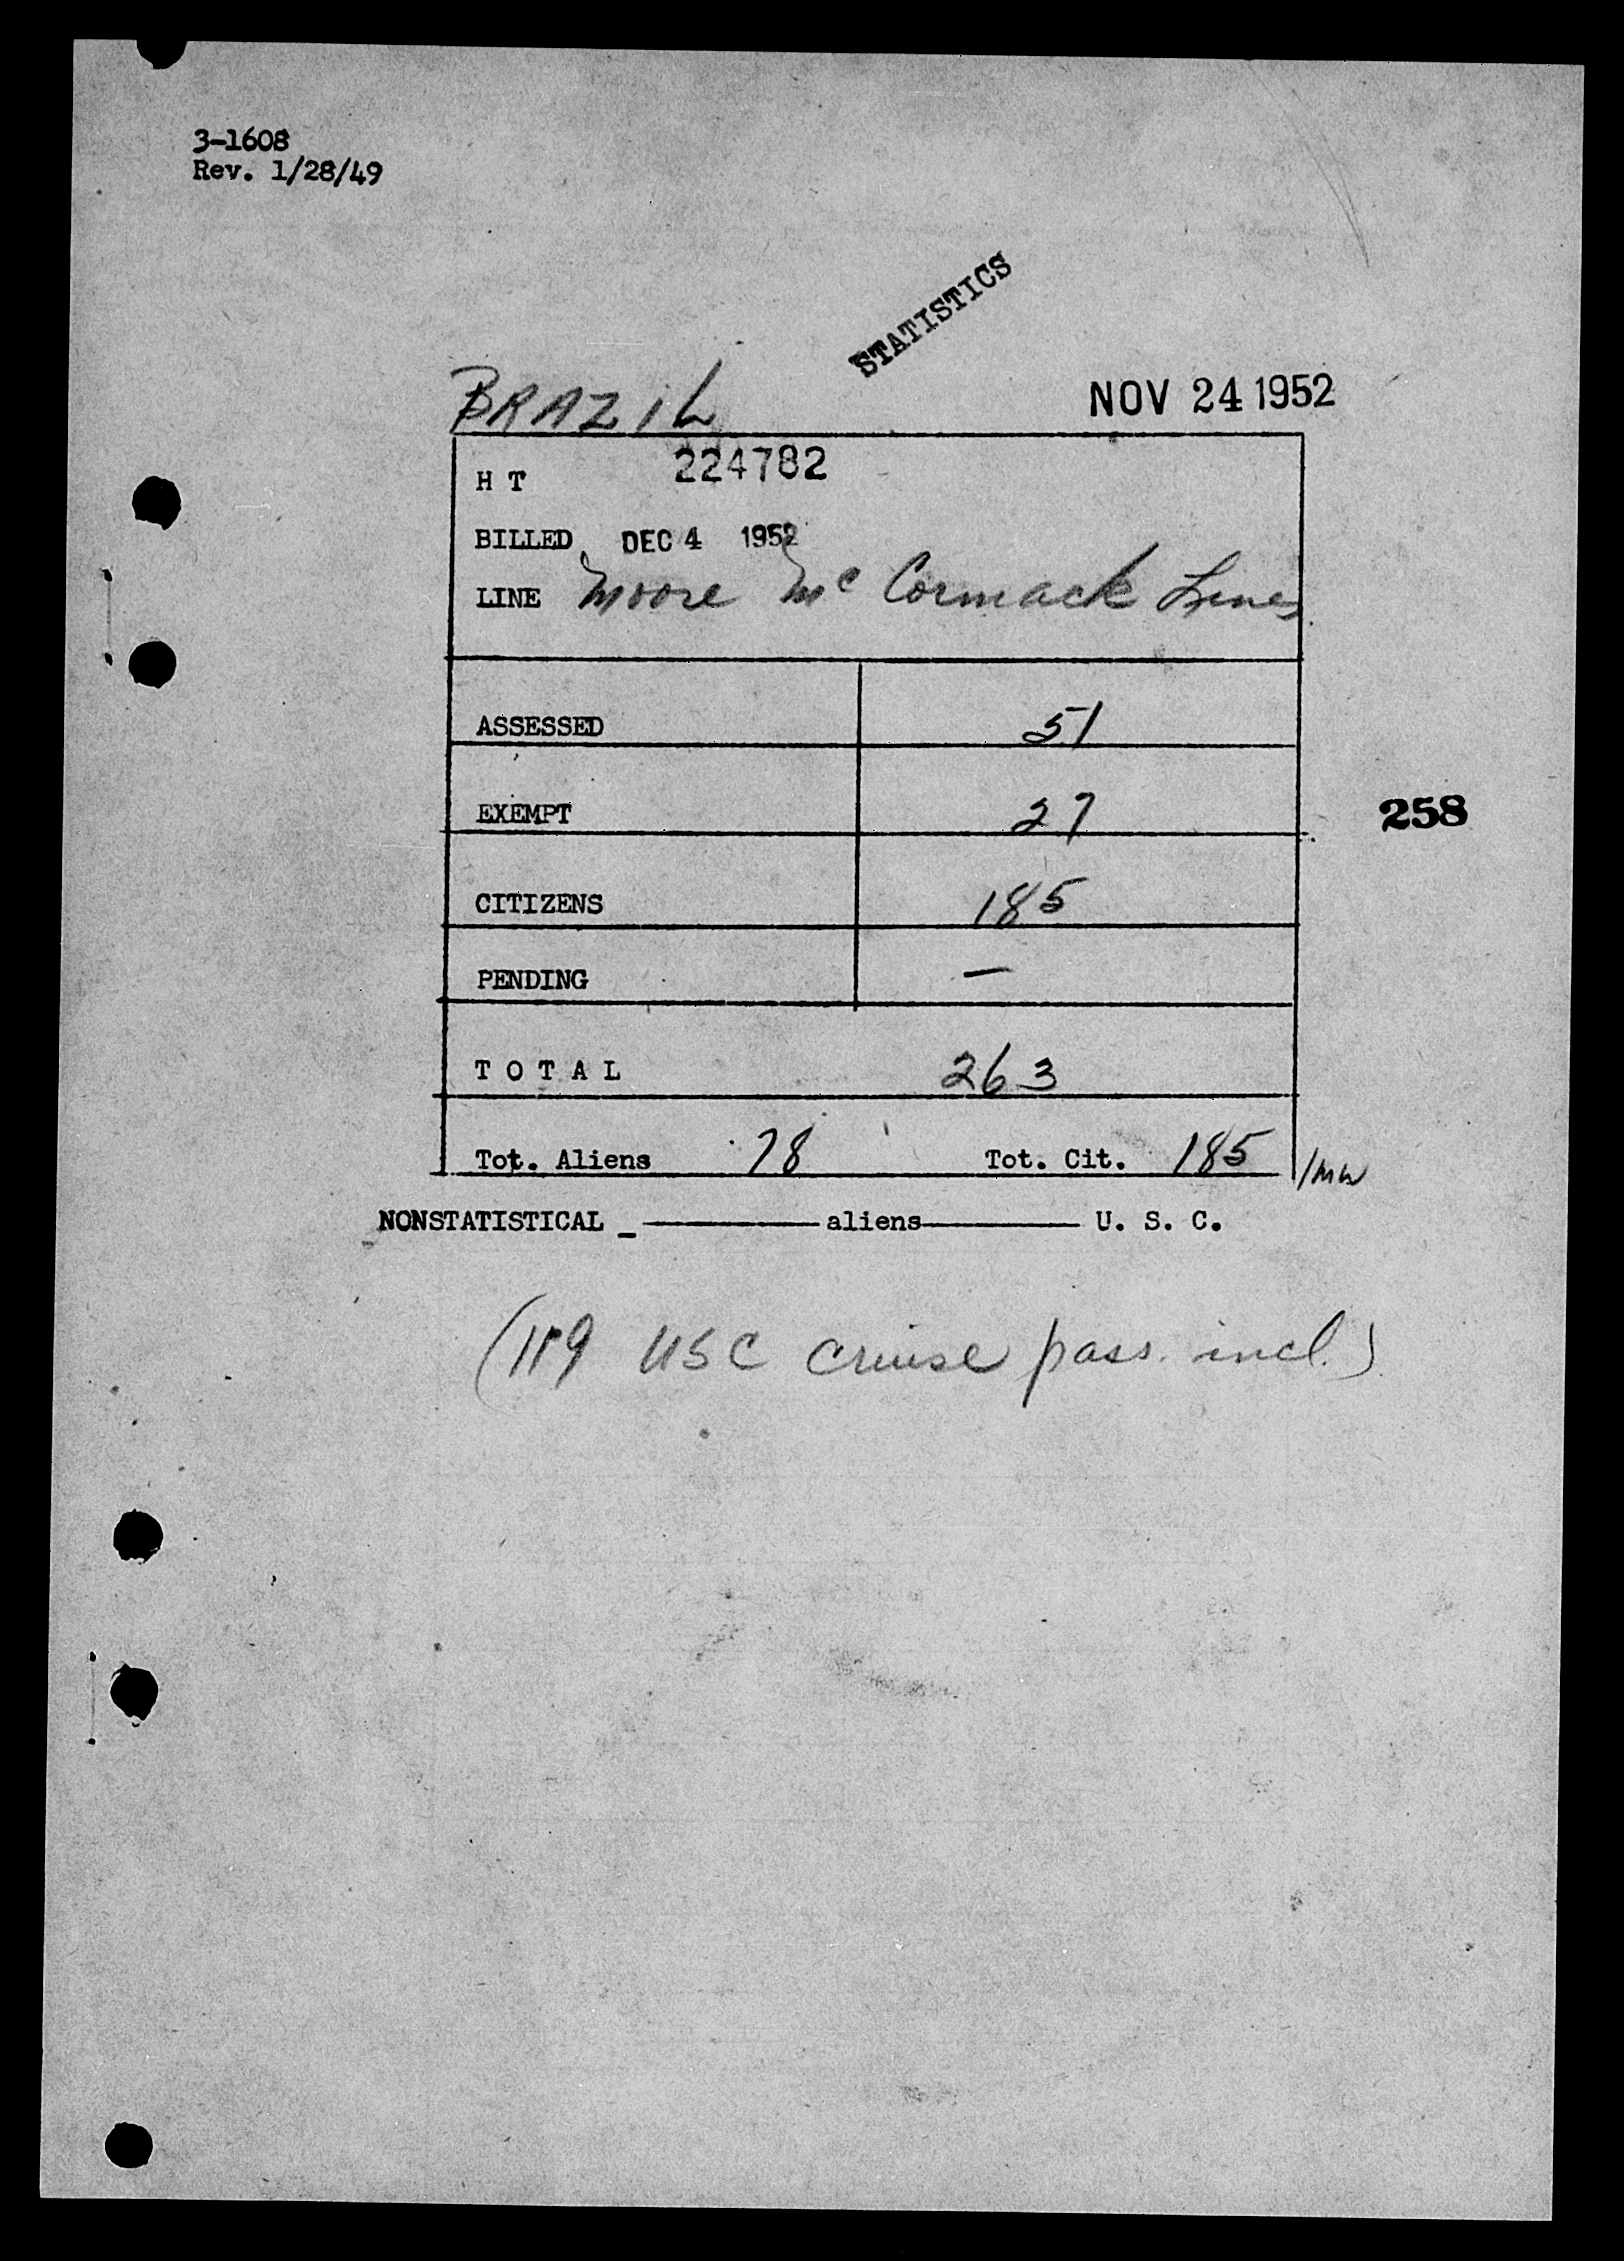 3-1608
Rev. 1/28/49
STATISTICS
BRAZIL
NOV 24 1952
H T 224782
BILLED DEC 4 1952
LINE Moore McCormack Lines
ASSESSED 51
EXEMPT 27
258
CITIZENS 185
PENDING —
T O T A L 263
Tot. Aliens 78 Tot. Cit. 185 /mw
NONSTATISTICAL _ ———— aliens ———— U. S. C.
(119 USC cruise pass. incl.)